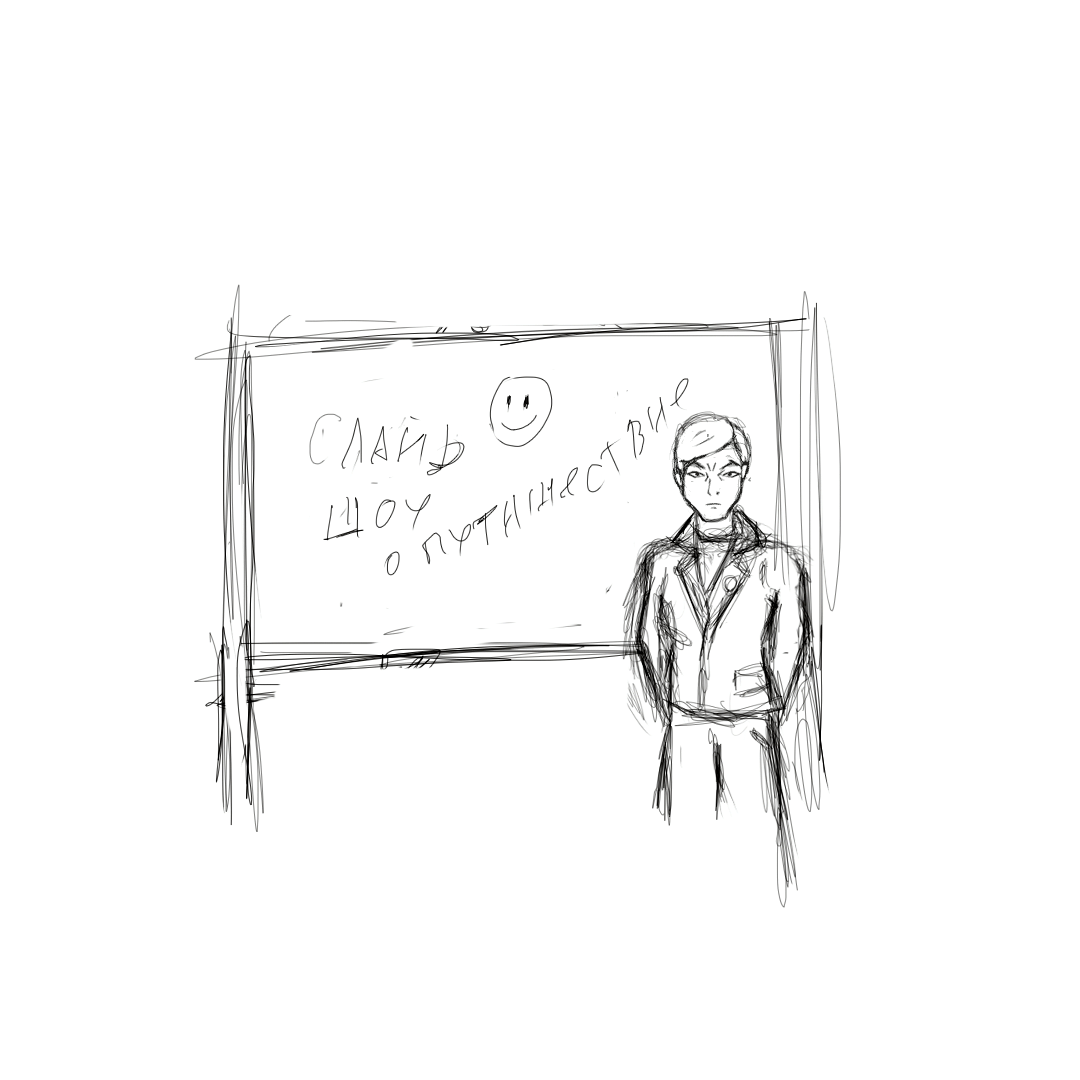 СЛАЙЬ
ШОУ
О ПУТНШНЕСТВНЕ